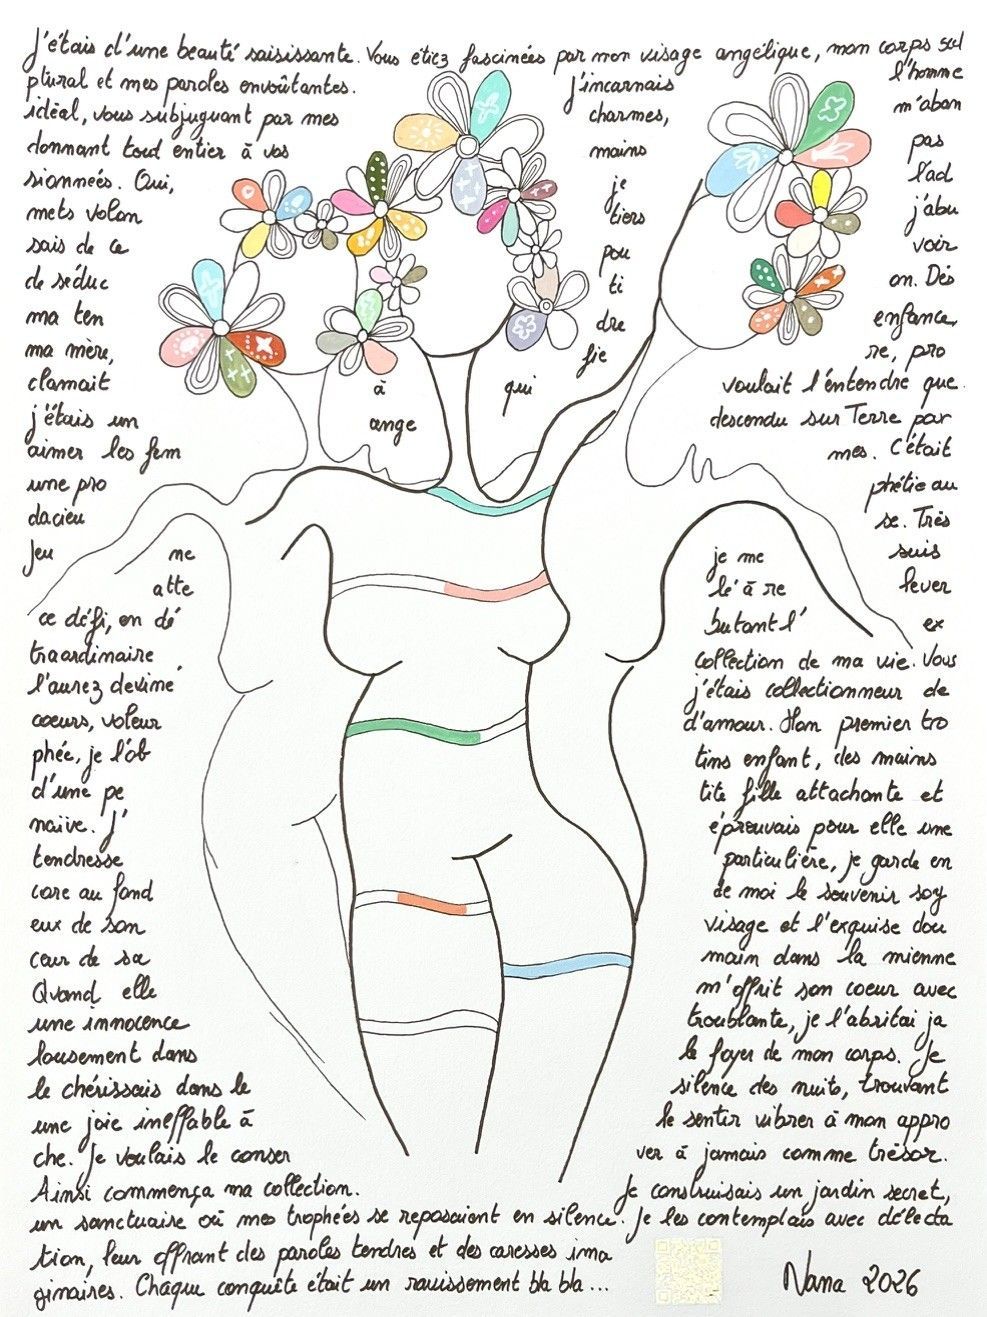 J'étais d'une beauté saisissante. Vous étiez fascinées par mon visage angélique, mon corps scul
ptural et mes paroles envoûtantes. J'incarnais l'homme
idéal, vous subjuguant par mes charmes, m'aban
donnant tout entier à vos mains pas
sionnées. Oui, je l'ad
mets volon tiers j'abu
sais de ce pou voir
de séduc ti on. Dès
ma ten dre enfance,
ma mère, fie re, pro
clamait à qui voulait l'entendre que
j'étais un ange descendu sur Terre par
aimer les fem mes. C'était
une pro phétie au
dacieu se. Très
jeu ne je me suis
atte lé à re lever
ce défi, en dé butant l' ex
traordinaire collection de ma vie. Vous
l'aurez deviné j'étais collectionneur de
coeurs, voleur d'amour. Mon premier tro
phée, je l'ob tins enfant, des mains
d'une pe tite fille attachante et
naïve. J' éprouvais pour elle une
tendresse particulière, je garde en
core au fond de moi le souvenir soy
eux de son visage et l'exquise dou
ceur de sa main dans la mienne
Quand elle m'offrit son coeur avec
une innocence troublante, je l'abritai ja
lousement dans le foyer de mon corps. Je
le chérissais dans le silence des nuits, trouvant
une joie ineffable à le sentir vibrer à mon appro
che. Je voulais le conser ver à jamais comme trésor.
Ainsi commença ma collection. Je construisais un jardin secret,
un sanctuaire où mes trophées se reposaient en silence. Je les contemplais avec délecta
tion, leur offrant des paroles tendres et des caresses ima
ginaires. Chaque conquête était un ravissement bla bla...
Nana 2026